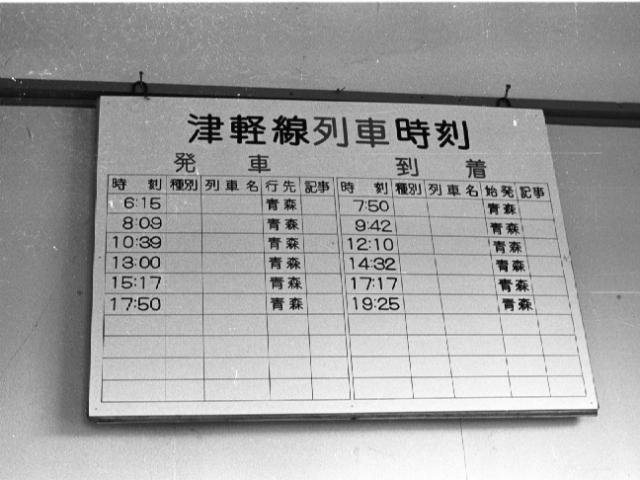 津軽線列車時刻
発車 到着
時刻 種別 列車名 行先 記事 時刻 種別 列車名 始発 記事
6:15 青森 7:50 青森
8:09 青森 9:42 青森
10:39 青森 12:10 青森
13:00 青森 14:32 青森
15:17 青森 17:17 青森
17:50 青森 19:25 青森